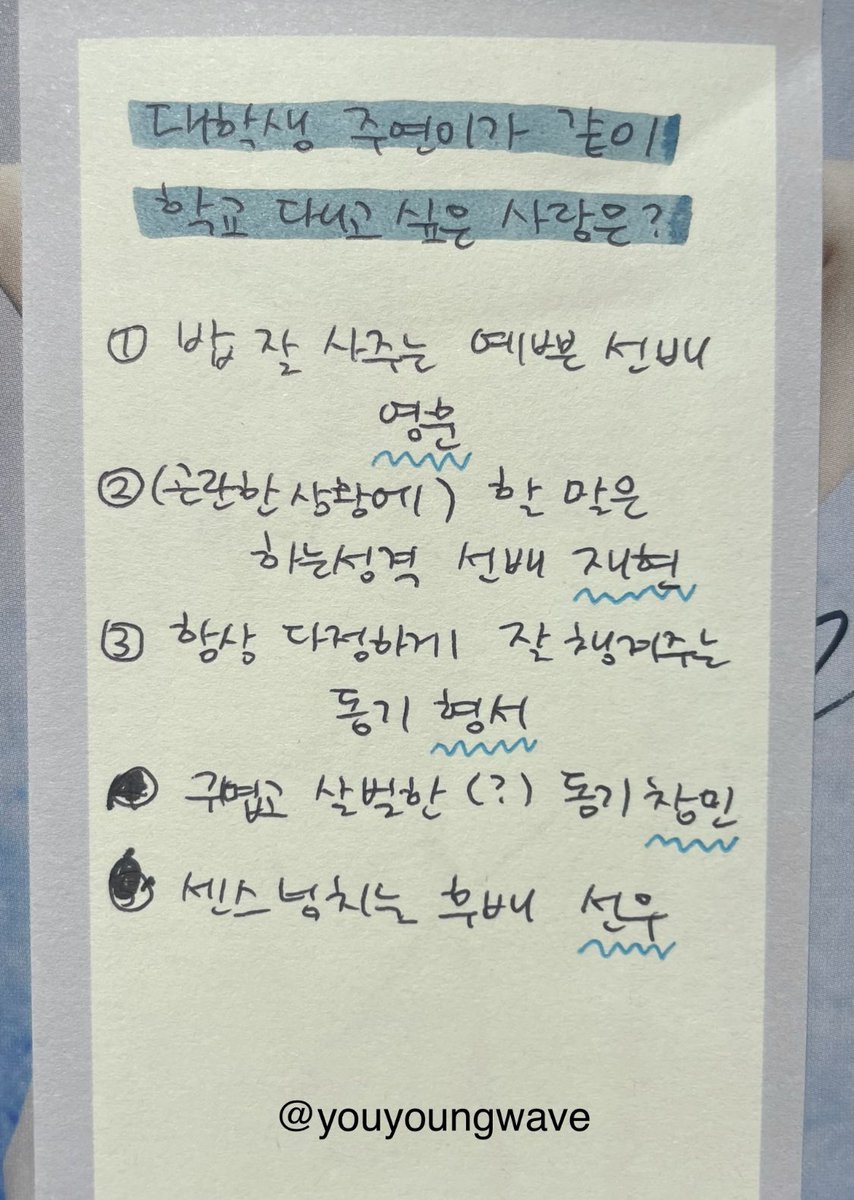 대학생 주연이가 같이
학교 다니고 싶은 사람은?
① 밥 잘 사주는 예쁜 선배
영훈
② (곤란한 상황에) 할 말은
하는성격 선배 재현
③ 항상 다정하게 잘 챙겨주는
동기 형서
④ 귀엽고 살벌한 (?) 동기 창민
⑤ 센스 넘치는 후배 선우
@youyoungwave